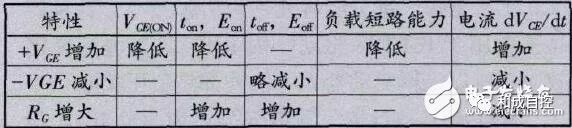 特性 V_GE(ON) t_on, E_on t_off, E_off 负载短路能力 电流 dV_CE/dt
+V_GE 增加 降低 降低 — 降低 增加
-VGE 减小 — — 略减小 — 减小
R_G 增大 — 增加 增加 —
电子发烧友